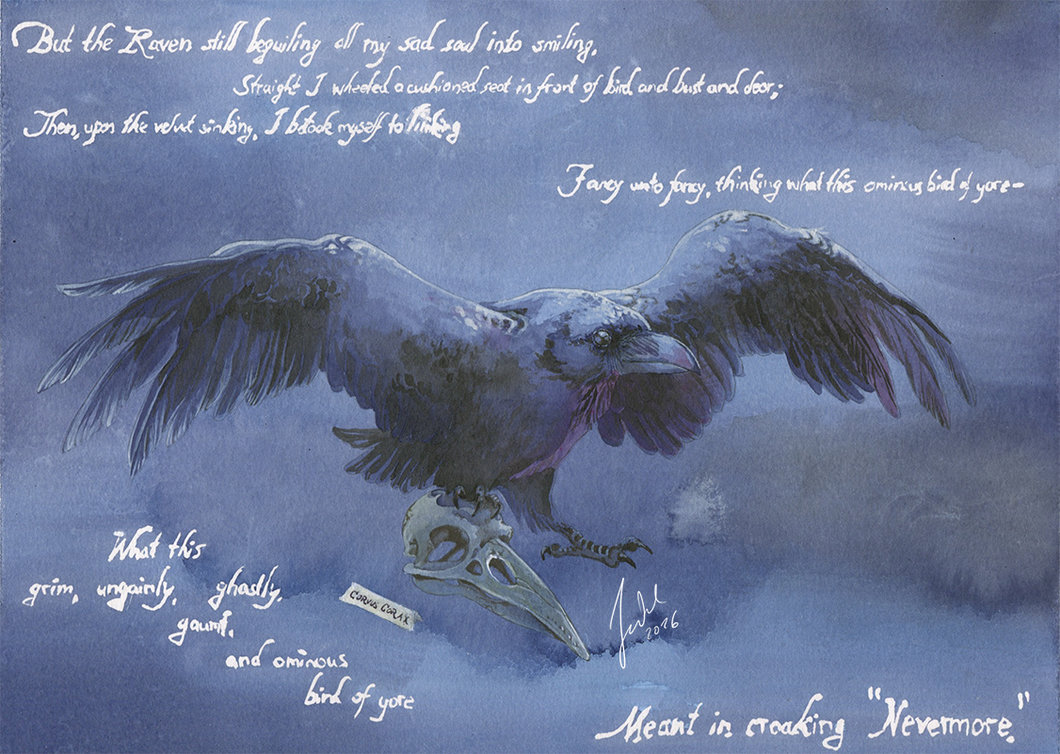 But the Raven still beguiling all my sad soul into smiling,
Straight I wheeled a cushioned seat in front of bird and bust and door;
Then, upon the velvet sinking, I betook myself to linking
Fancy unto fancy, thinking what this ominous bird of yore—
What this
grim, ungainly, ghastly,
gaunt,
and ominous
bird of yore
CORVUS CORAX
2016
Meant in croaking "Nevermore."